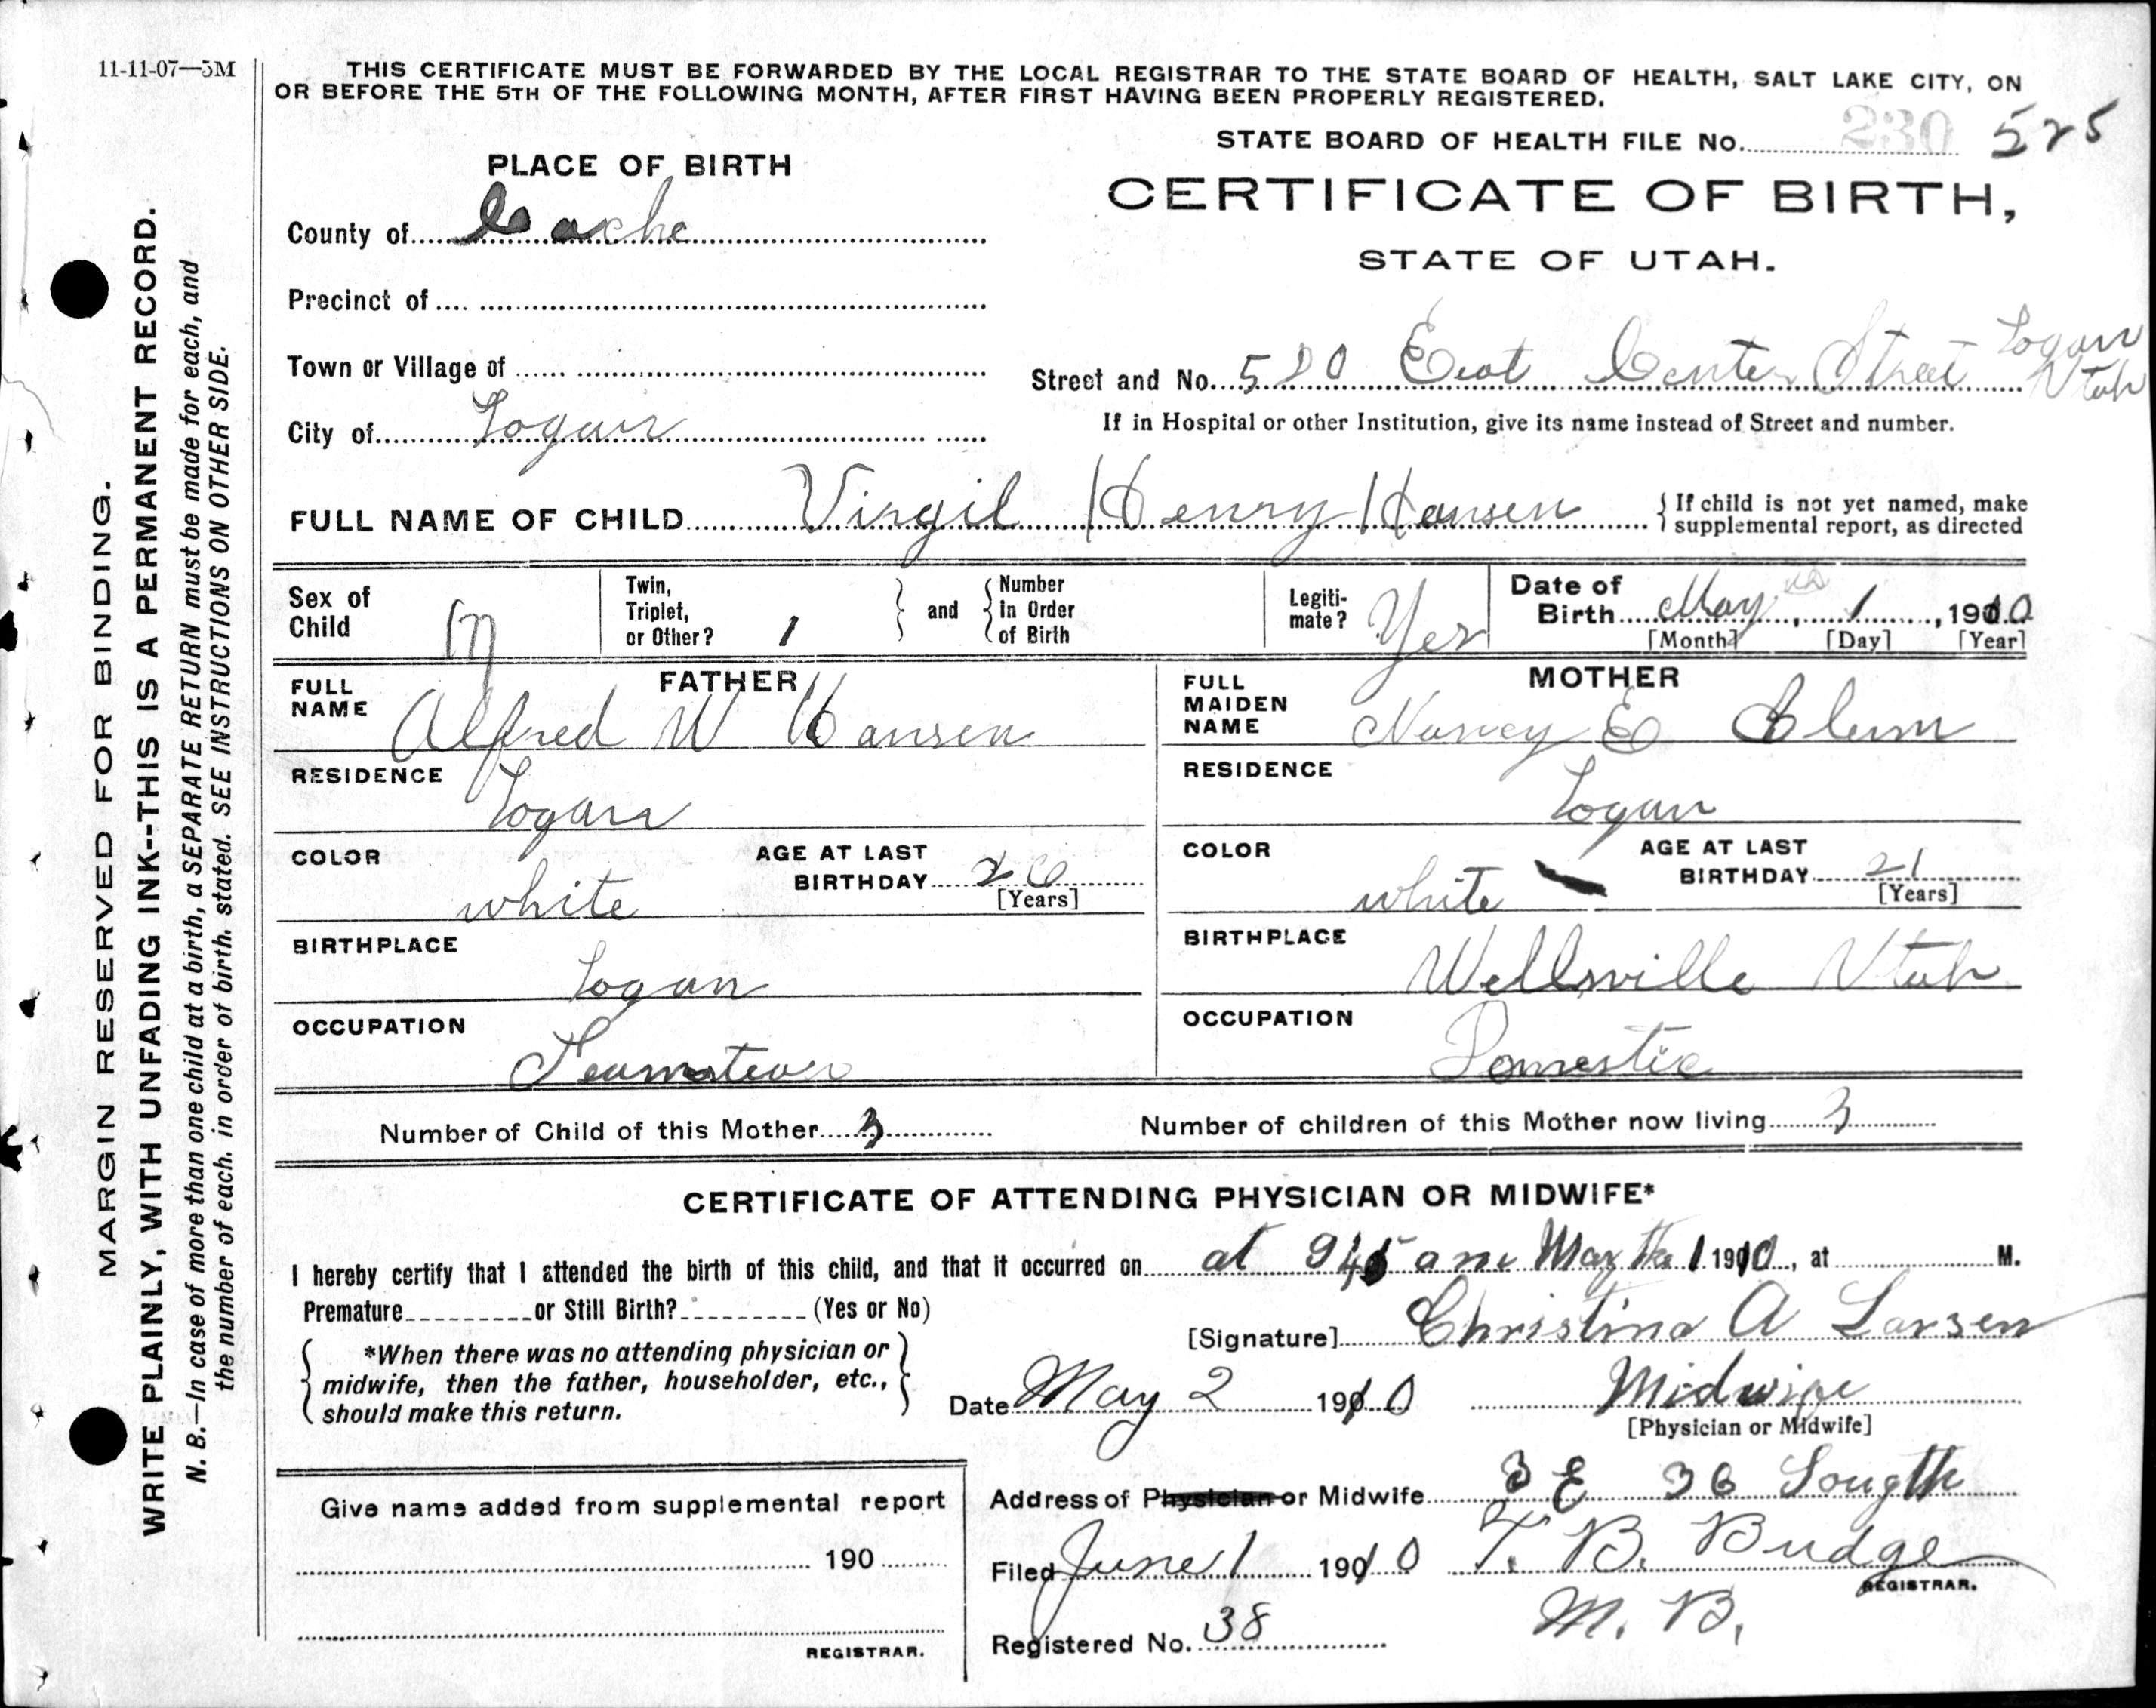 11-11-07—5M
THIS CERTIFICATE MUST BE FORWARDED BY THE LOCAL REGISTRAR TO THE STATE BOARD OF HEALTH, SALT LAKE CITY, ON
OR BEFORE THE 5TH OF THE FOLLOWING MONTH, AFTER FIRST HAVING BEEN PROPERLY REGISTERED.
STATE BOARD OF HEALTH FILE No. 230 525
PLACE OF BIRTH
CERTIFICATE OF BIRTH,
STATE OF UTAH.
County of Cache
Precinct of
Town or Village of
Street and No. 520 East Center Street Logan Utah
City of Logan
If in Hospital or other Institution, give its name instead of Street and number.
FULL NAME OF CHILD Virgil Henry Hansen { If child is not yet named, make
supplemental report, as directed
Sex of Child M
Twin, Triplet, or Other? 1
and
Number In Order of Birth
Legiti-mate? Yes
Date of Birth May, 1, 1910
[Month] [Day] [Year]
FATHER
FULL NAME Alfred W Hansen
RESIDENCE Logan
COLOR white
AGE AT LAST BIRTHDAY 26 [Years]
BIRTHPLACE Logan
OCCUPATION Teamster
MOTHER
FULL MAIDEN NAME Nancy E
RESIDENCE Logan
COLOR white
AGE AT LAST BIRTHDAY 21 [Years]
BIRTHPLACE Wellsville Utah
OCCUPATION Domestic
Number of Child of this Mother 3
Number of children of this Mother now living 3
CERTIFICATE OF ATTENDING PHYSICIAN OR MIDWIFE*
I hereby certify that I attended the birth of this child, and that it occurred on at 945 am May the 1 1910, at M.
Premature or Still Birth? (Yes or No)
[Signature] Christina A Larsen
*When there was no attending physician or
midwife, then the father, householder, etc.,
should make this return.
Date May 2 1910 Midwife
[Physician or Midwife]
Address of Physician or Midwife 3 E 36 Sougth
Filed June 1 1910 T. B. Budge
REGISTRAR.
M. B.
Registered No. 38
Give name added from supplemental report
190
REGISTRAR.
MARGIN RESERVED FOR BINDING.
WRITE PLAINLY, WITH UNFADING INK--THIS IS A PERMANENT RECORD.
N. B.—In case of more than one child at a birth, a SEPARATE RETURN must be made for each, and
the number of each, in order of birth, stated. SEE INSTRUCTIONS ON OTHER SIDE.